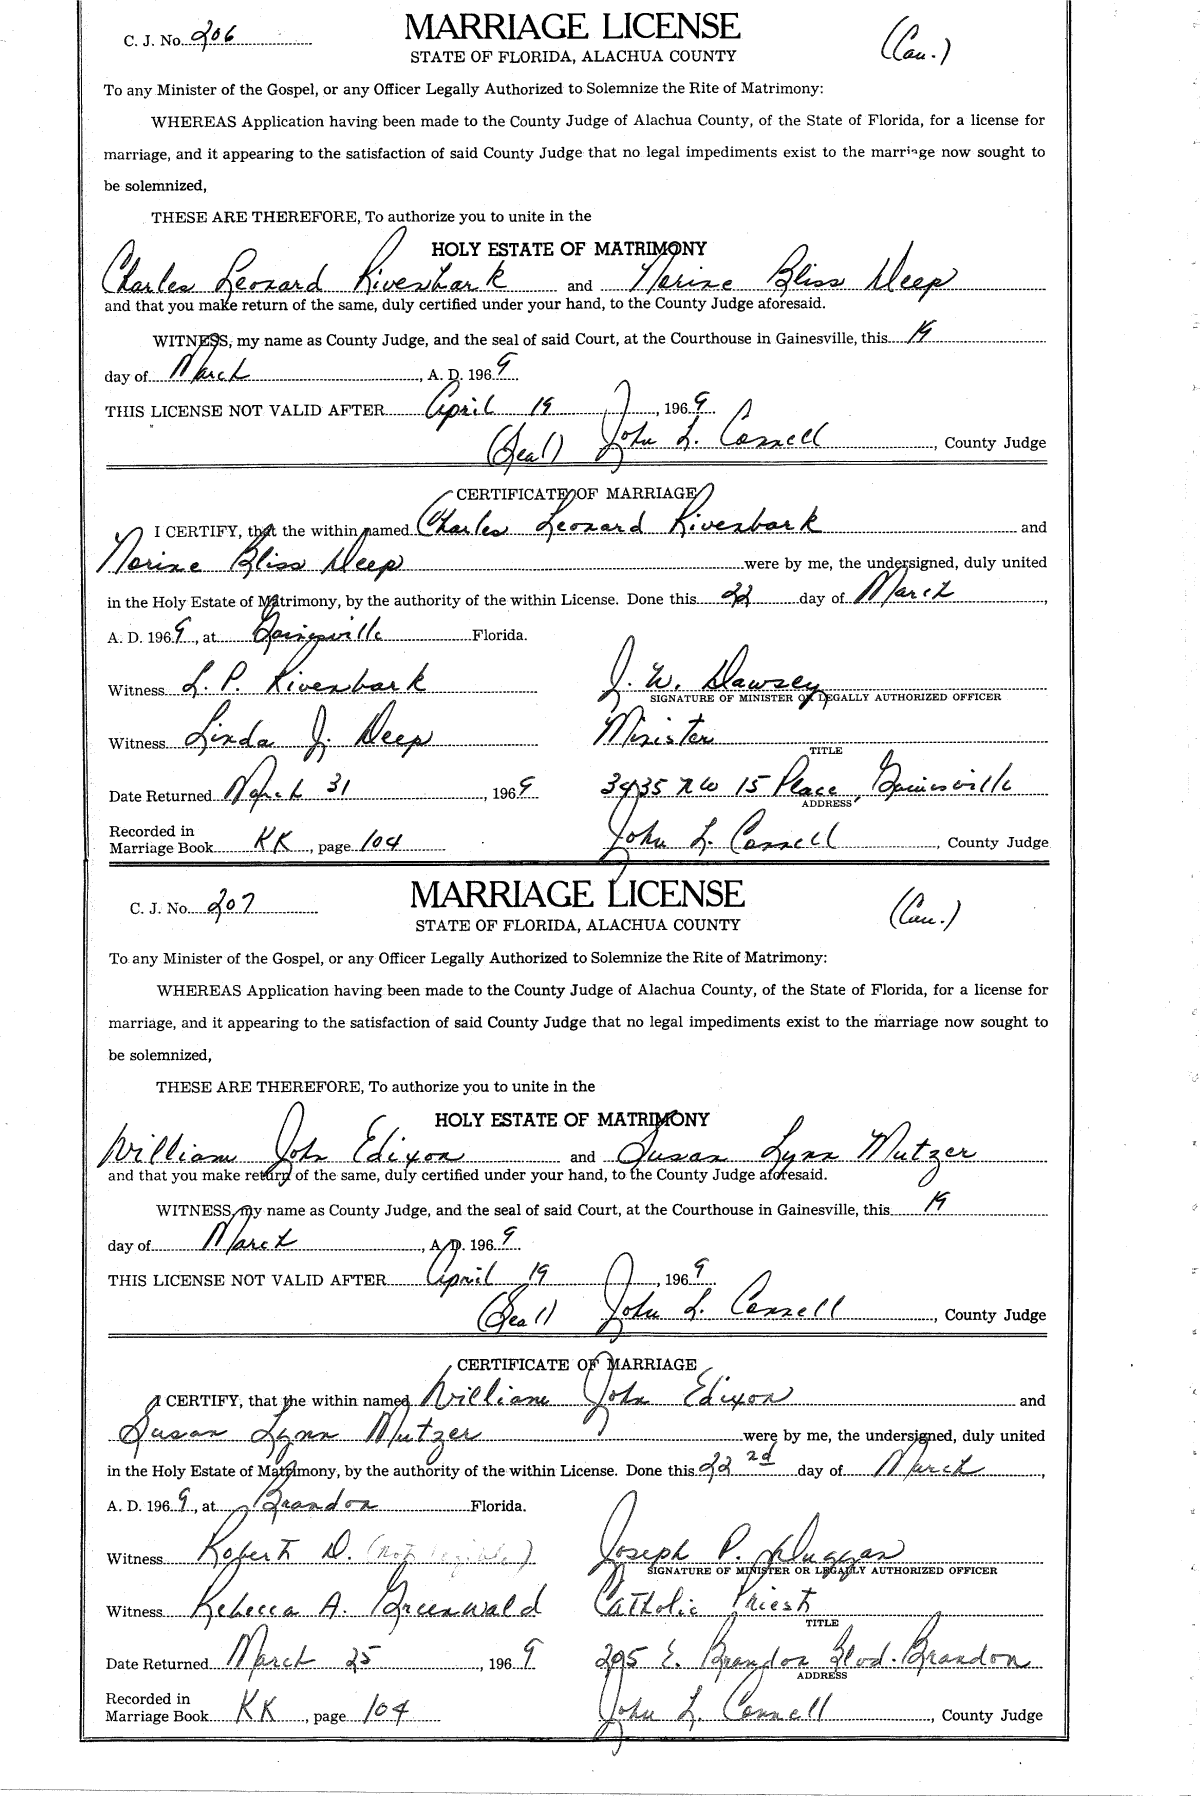 C. J. No. 206
MARRIAGE LICENSE
(Cau.)
STATE OF FLORIDA, ALACHUA COUNTY
To any Minister of the Gospel, or any Officer Legally Authorized to Solemnize the Rite of Matrimony:
WHEREAS Application having been made to the County Judge of Alachua County, of the State of Florida, for a license for
marriage, and it appearing to the satisfaction of said County Judge that no legal impediments exist to the marriage now sought to
be solemnized,
THESE ARE THEREFORE, To authorize you to unite in the
HOLY ESTATE OF MATRIMONY
Charles Leonard Rivenbark and Norine Bliss Deep
and that you make return of the same, duly certified under your hand, to the County Judge aforesaid.
WITNESS, my name as County Judge, and the seal of said Court, at the Courthouse in Gainesville, this 19
day of March, A. D. 1969
THIS LICENSE NOT VALID AFTER April 19, 1969
(Seal) John L. Connell, County Judge
CERTIFICATE OF MARRIAGE
I CERTIFY, that the within named Charles Leonard Rivenbark and
Norine Bliss Deep were by me, the undersigned, duly united
in the Holy Estate of Matrimony, by the authority of the within License. Done this 22 day of March,
A. D. 1969, at Gainesville Florida.
Witness L. P. Rivenbark J. W. Dawsey
SIGNATURE OF MINISTER OR LEGALLY AUTHORIZED OFFICER
Witness Linda J. Deep Minister
TITLE
Date Returned March 31, 1969 3935 NW 15 Place, Gainesville
ADDRESS
Recorded in
Marriage Book KK, page 104 John L. Connell, County Judge
C. J. No. 207
MARRIAGE LICENSE
(Cau.)
STATE OF FLORIDA, ALACHUA COUNTY
To any Minister of the Gospel, or any Officer Legally Authorized to Solemnize the Rite of Matrimony:
WHEREAS Application having been made to the County Judge of Alachua County, of the State of Florida, for a license for
marriage, and it appearing to the satisfaction of said County Judge that no legal impediments exist to the marriage now sought to
be solemnized,
THESE ARE THEREFORE, To authorize you to unite in the
HOLY ESTATE OF MATRIMONY
William John Edixon and Susan Lynn Mutzer
and that you make return of the same, duly certified under your hand, to the County Judge aforesaid.
WITNESS, my name as County Judge, and the seal of said Court, at the Courthouse in Gainesville, this 19
day of March, A. D. 1969
THIS LICENSE NOT VALID AFTER April 19, 1969
(Seal) John L. Connell, County Judge
CERTIFICATE OF MARRIAGE
I CERTIFY, that the within named William John Edixon and
Susan Lynn Mutzer were by me, the undersigned, duly united
in the Holy Estate of Matrimony, by the authority of the within License. Done this 22nd day of March,
A. D. 1969, at Brandon Florida.
Witness Robert D. (not legible) Joseph P. Duggan
SIGNATURE OF MINISTER OR LEGALLY AUTHORIZED OFFICER
Witness Rebecca A. Greenwald Catholic Priest
TITLE
Date Returned March 25, 1969 E. Brandon Blvd. Brandon
ADDRESS
Recorded in
Marriage Book KK, page 104 John L. Connell, County Judge